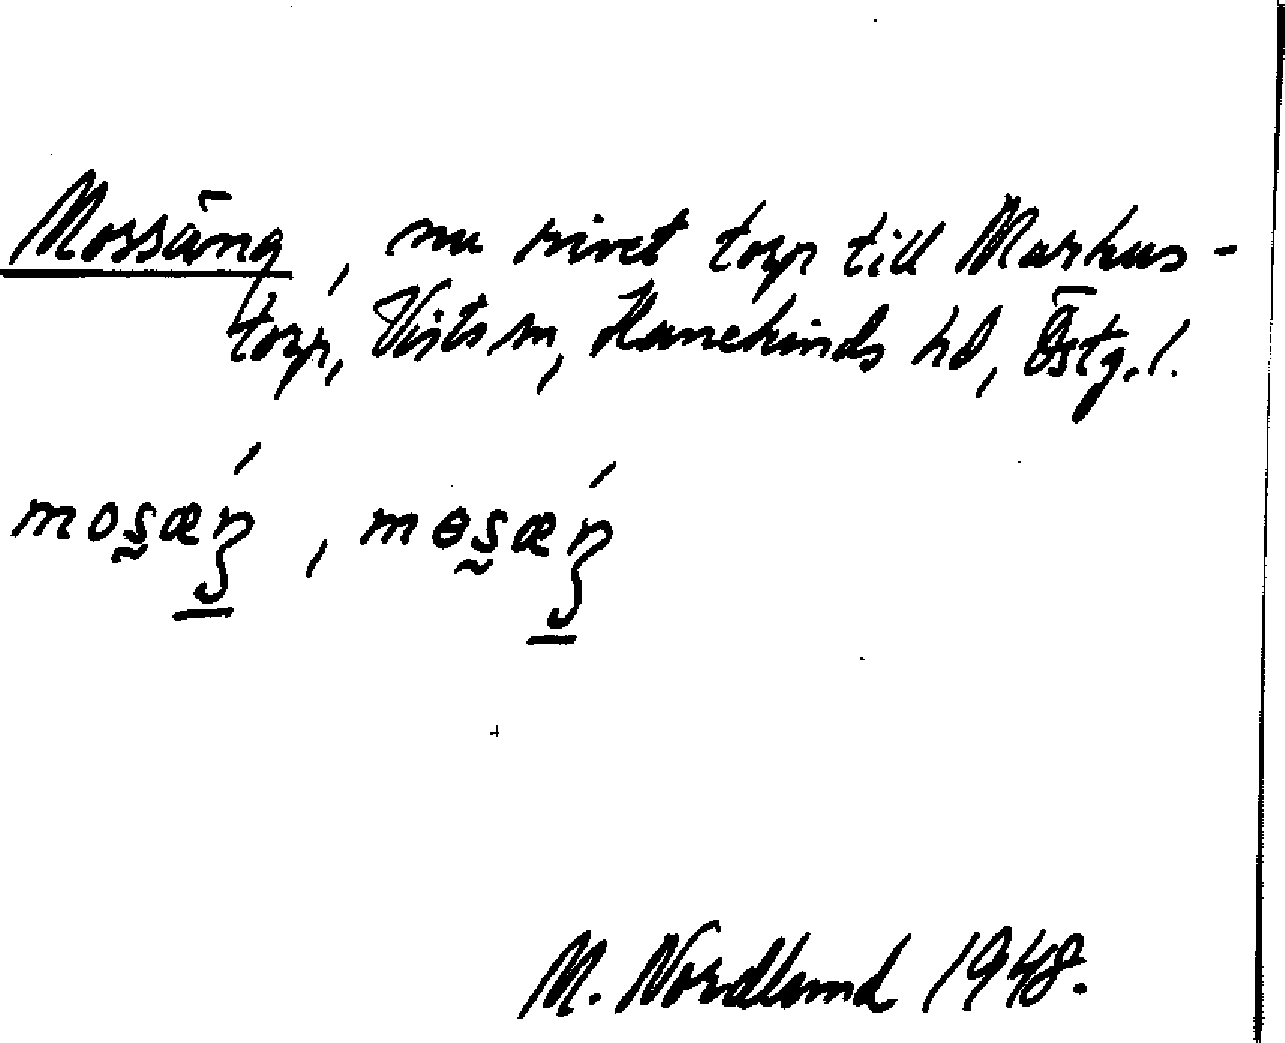 Mossäng, nu rivet torp till Markus-
torp, Vists sn, Hanekinds hd, Östg. l.
mos̰æŋ́, mɵs̰æŋ́
M. Nordlund 1948.